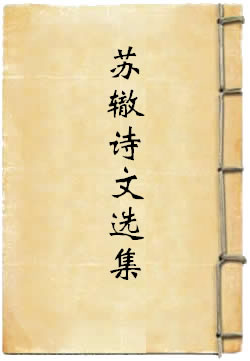 苏辙诗文选集